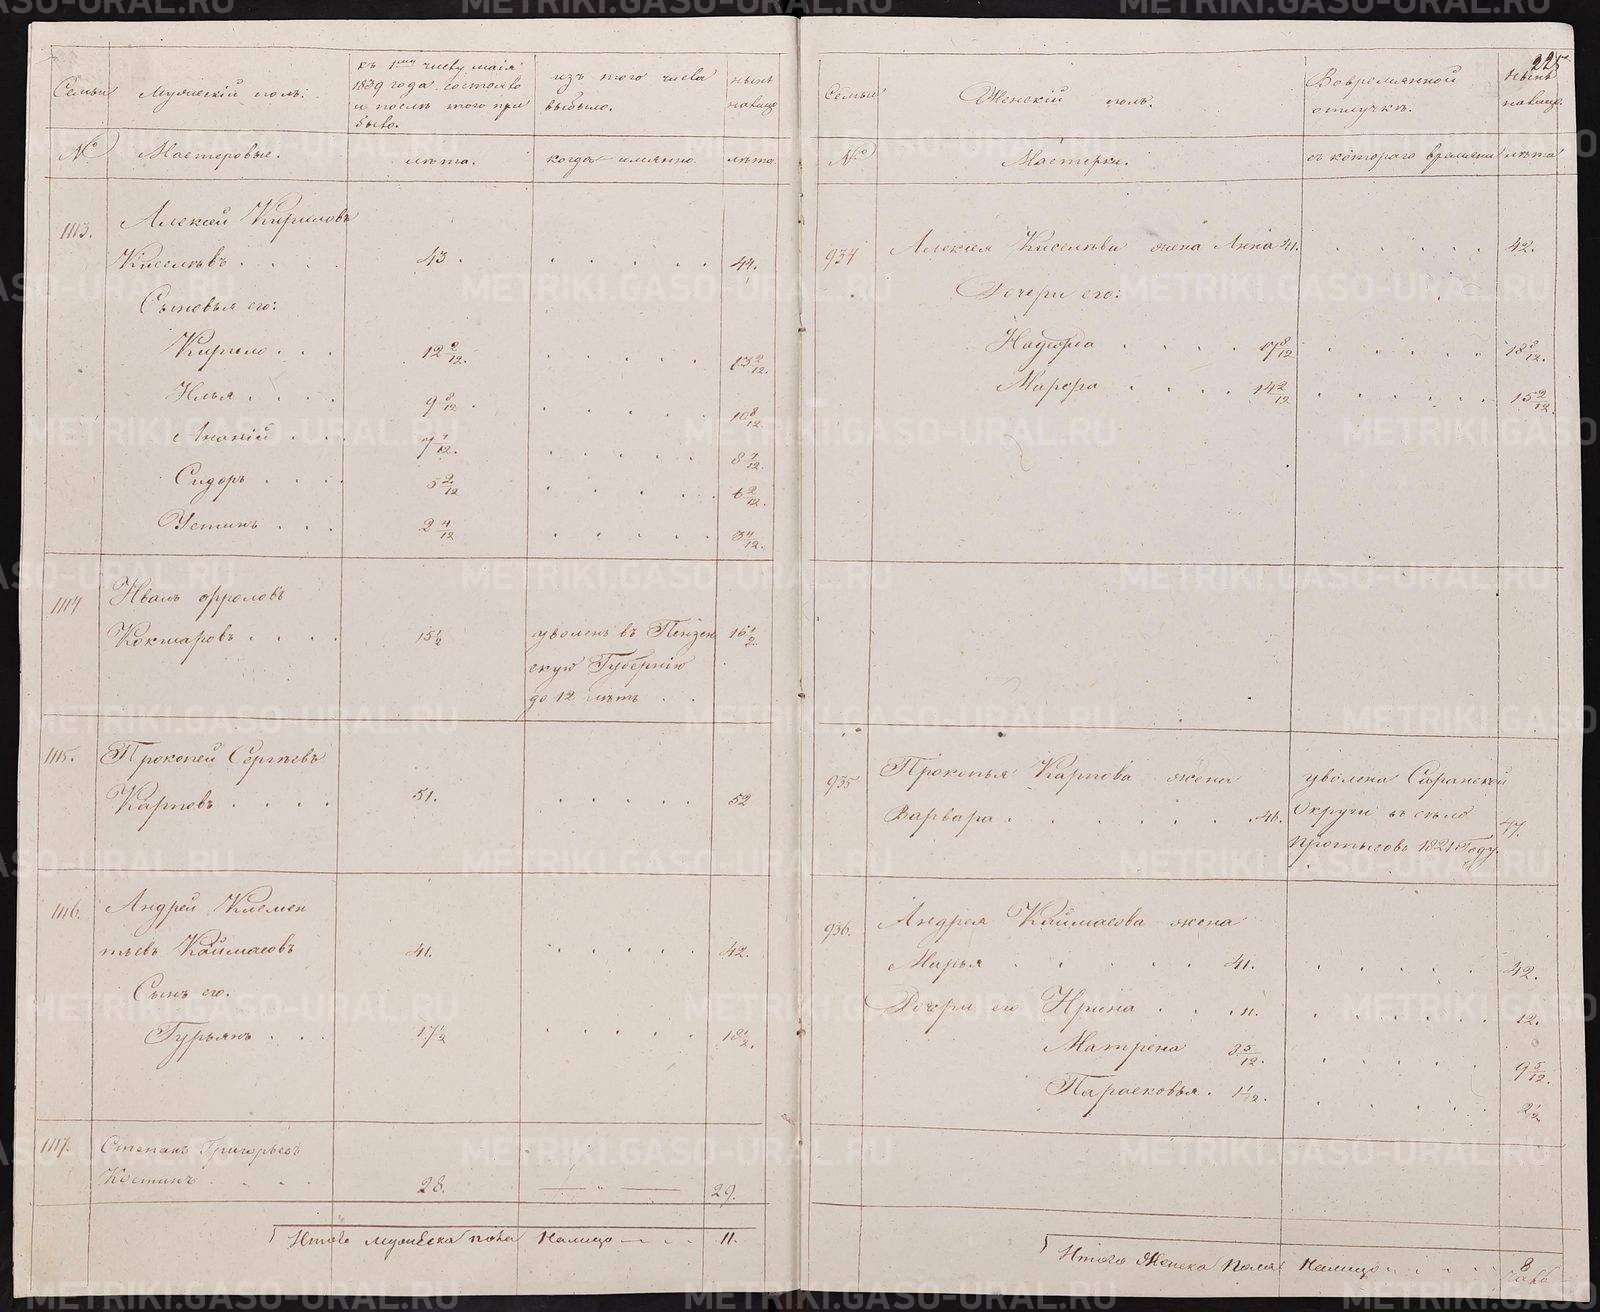 225
Семьи
Мужескій полъ.
къ 1му числу маія
1839 года состояло
и послѣ того при
было.
изъ того числа
выбыло.
нынѣ
налицо
№
Мастеровые.
лѣта.
когда имянно
лѣта.
1113.
Алексей Кириловъ
Киселѣвъ . . . . 43 . . . . . . . 44.
Сыновья его:
Кирило . . . 12 2/12. . . . . . 13 2/12.
Илья . . . . 9 8/12 . . . . . . 10 8/12
Ананій . . . 7 1/12. . . . . . 8 1/12.
Сидоръ . . . . 5 2/12 . . . . . . 6 2/12.
Устинъ . . . 2 4/12 . . . . . 3 4/12.
1114
Иванъ Фроловъ
Кокшаровъ . . . . 15 1/2 уволенъ въ Пензен 16 1/2.
скую Губернію
до 12 лѣтъ . .
1115.
Прокопей Сергѣевъ
Карповъ . . . . 51. . . . . . 52
1116.
Андрей Клемен
тьевъ Каймасовъ 41. . . . . . 42.
Сынъ его.
Гурьянъ . . . 17 1/2 . . . . . 18 1/2.
1117.
Степанъ Григорьевъ
Костинъ . . . . 28. — " — 29.
Итого мужеска пола налицо — . . . 11.
Семьи
Женскій полъ.
Вовремянной
отлучкѣ.
нынѣ
налицо.
№
Мастерки.
съ котораго времяни
лѣта
934
Алексея Киселѣва жена Анна 41. . . . . . 42.
Дочери его:
Надежда . . . . 17 8/12 . . . . . 18 8/12.
Марфа . . . . 14 2/12 . . . . . . 15 2/12.
935
Прокопья Карпова жена уволена Саранской
Варвара . . . . . . . 46. Округи въ село 47.
1821 Году.
936.
Андрея Каймасова жена
Марья . . . . . 41. . . . . . 42.
Дочери его Ирина . . . 11. . . . . . . 12.
Матрена 8 5/12. . . . . . 9 5/12.
Парасковья . 1 1/2. . . . . . 2 1/2
Итого Женска пола налицо . . . . 8
METRIKI.GASO-URAL.RU